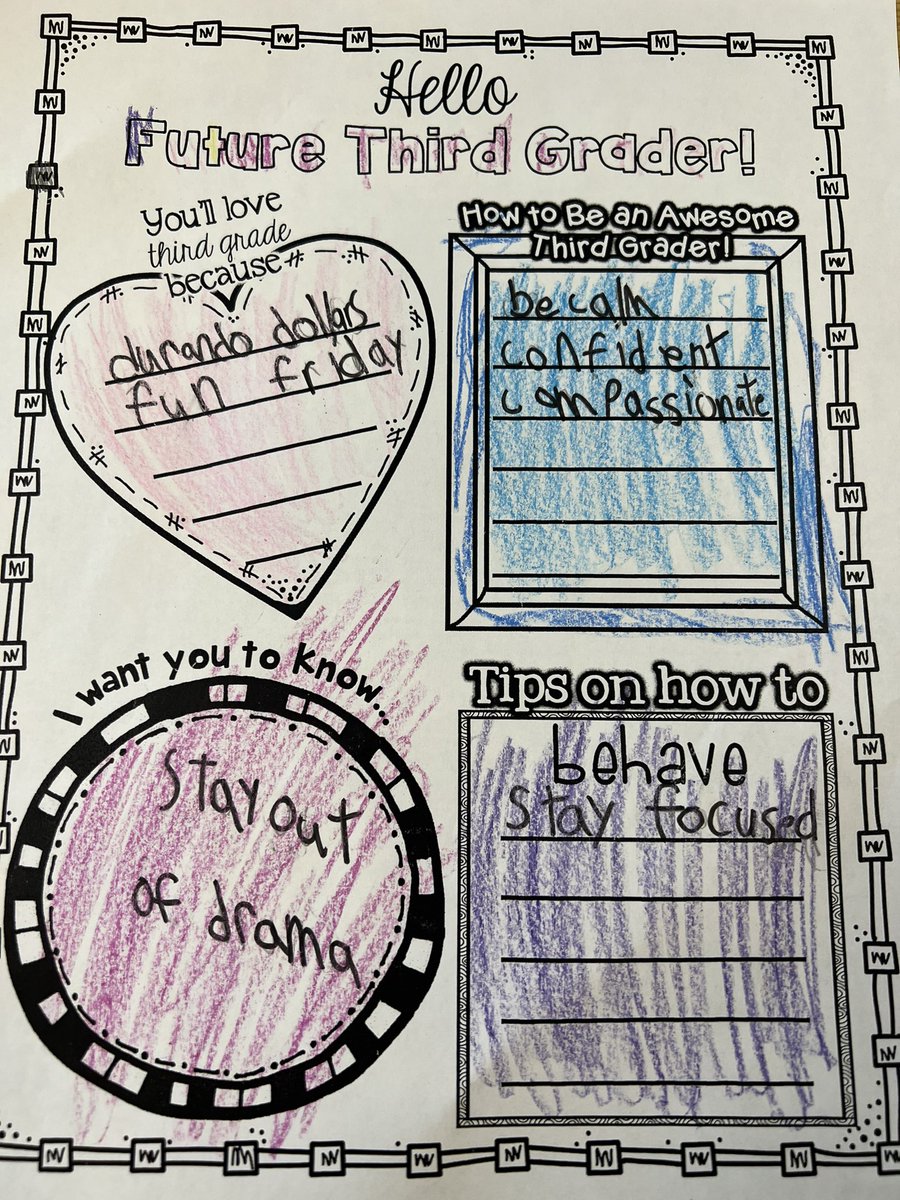 Hello
Future Third Grader!
You'll love
third grade
because
durando dollars
fun friday
How to Be an Awesome
Third Grader!
be calm
confident
compassionate
I want you to know...
Stay out
of drama
Tips on how to
behave
Stay focused